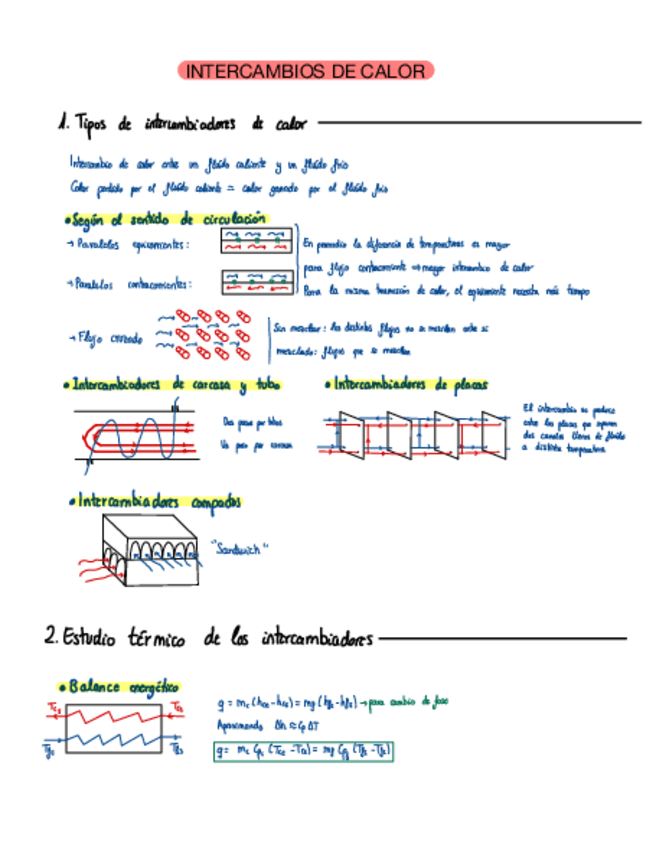 INTERCAMBIOS DE CALOR
1. Tipos de intercambiadores de calor
Intercambio de calor entre un fluido caliente y un fluido frío
Calor perdido por el fluido caliente = calor ganado por el fluido frío
• Según el sentido de circulación
→ Paralelos equicorrientes:
En promedio la diferencia de temperaturas es mayor
para flujo contracorriente ⇒ mayor intercambio de calor
→ Paralelos contracorrientes:
Para la misma transmisión de calor, el equicorriente necesita más tiempo
→ Flujo cruzado
Sin mezclar: los distintos flujos no se mezclan entre sí
mezclado: flujos que se mezclan
• Intercambiadores de carcasa y tubo
Dos pasos por tubos
Un paso por carcasa
• Intercambiadores de placas
El intercambio se produce
entre las placas que separan
dos canales llenos de fluido
a distinta temperatura
• Intercambiadores compactos
"Sandwich"
2. Estudio térmico de los intercambiadores
• Balance energético
q = mc (hce - hcs) = mf (hfs - hfe) → para cambio de fase
Aproximando Δh ≈ Cp ΔT
q = mc Cpc (Tce - Tcs) = mf Cpf (Tfs - Tfe)
Tcs
Tce
Tfe
Tfs